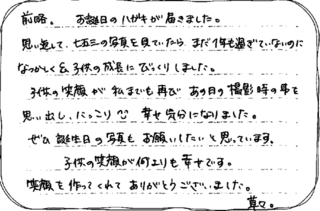 前略。　お誕日のハガキが届きました。
思い返して、七五三の写真を見ていたら、まだ1年も過ぎていないのに
なつかしく&子供の成長にびっくりしました。
子供の笑顔が私までも再び あの日の撮影時の事を
思い出し、にっこり☺ 幸せ気分になりました。
ぜひ誕生日の写真も お願いしたいと思っています。
子供の笑顔が何よりも幸せです。
笑顔を作ってくれて ありがとうございました。
草々。